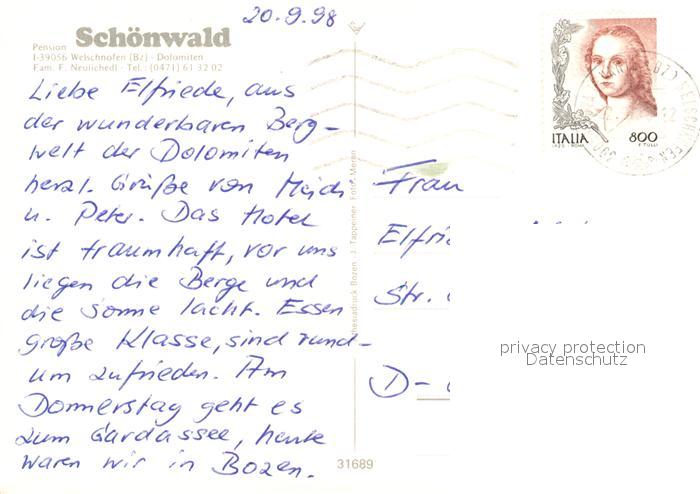 20.9.98
Pension Schönwald
I-39056 Welschnofen (Bz) · Dolomiten
Fam. F. Neulichedl · Tel.: (0471) 61 32 02
Liebe Elfriede, aus
der wunderbaren Berg-
welt der Dolomiten
herzl. Grüße von
u. Peter. Das Hotel
ist traumhaft, vor uns
liegen die Berge und
die Sonne lacht. Essen
große Klasse, sind rund-
um zufrieden. Am
Donnerstag geht es
zum Gardassee, heute
waren wir in Bozen.
31689
J. Tappeiner Foto Meran
ITALIA 800
Frau
Elfrie
Str.
D-
privacy protection
Datenschutz